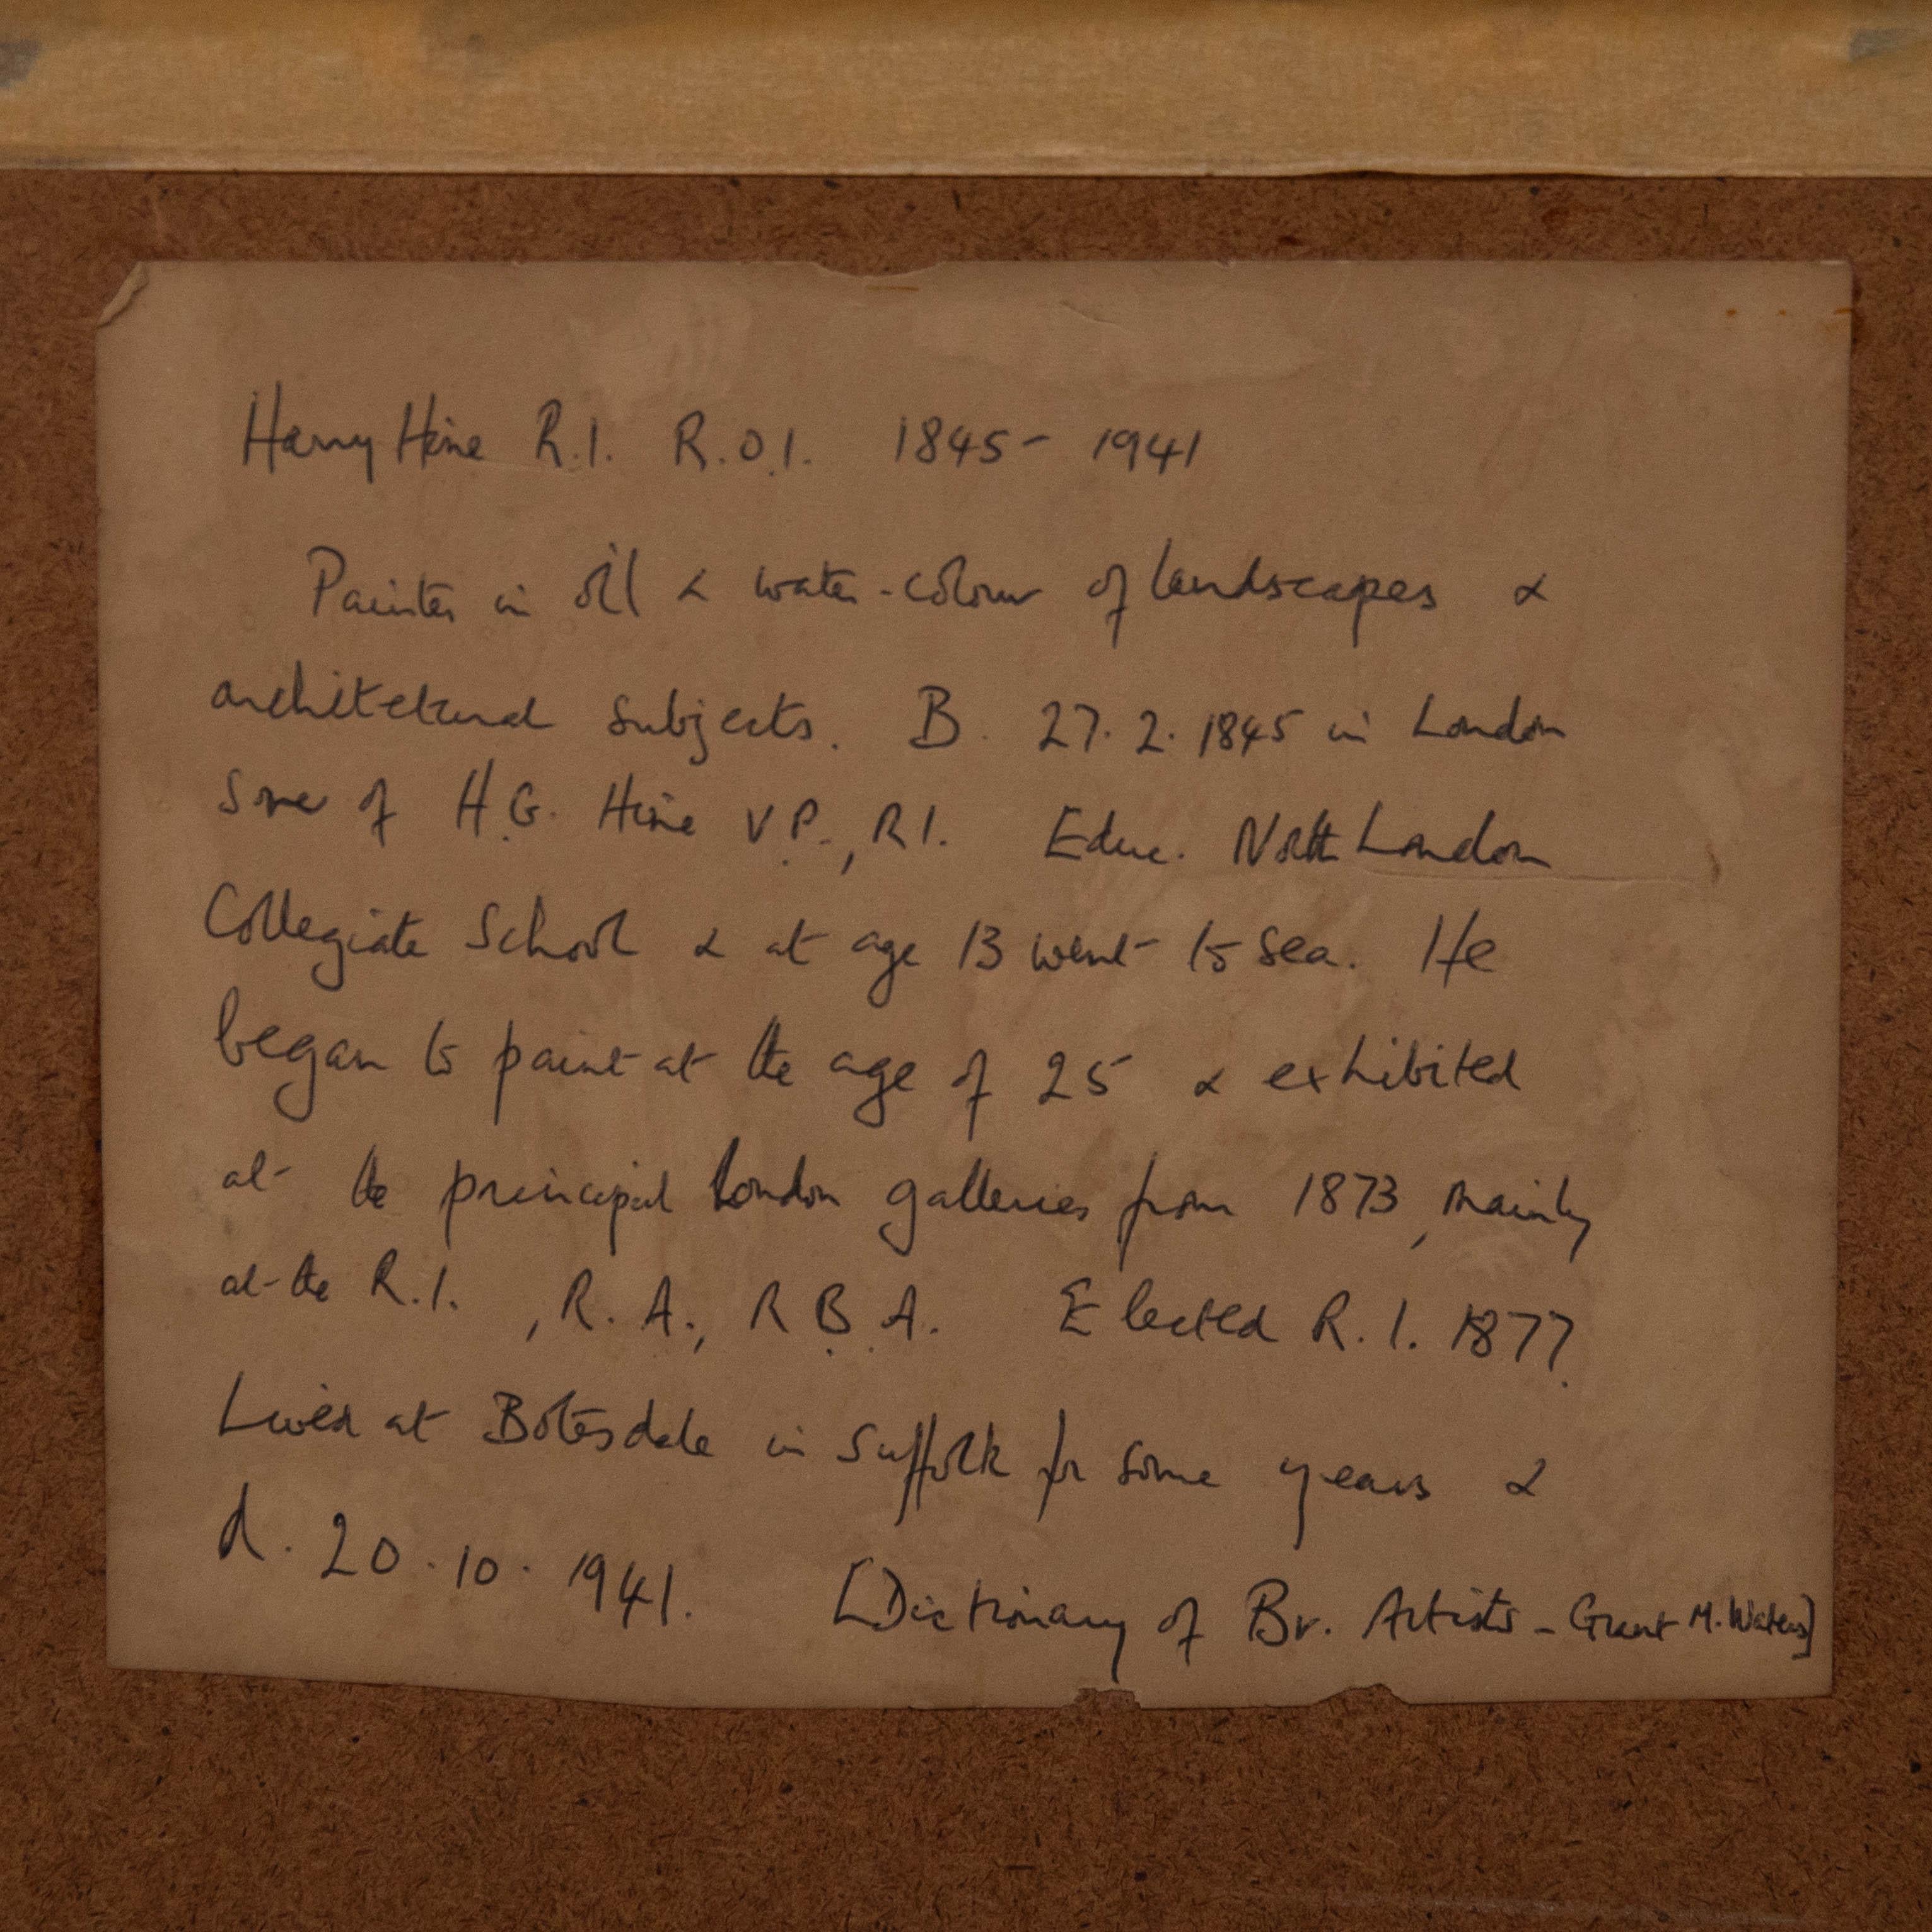 Harry Hine R.I. R.O.I. 1845 - 1941
Painter in oil & water-colour of landscapes &
architectural subjects. B. 27.2.1845 in London
Sone of H.G. Hine V.P., R.I. Educ. North London
Collegiate School & at age 13 went to sea. He
began to paint at the age of 25 & exhibited
at the principal London galleries from 1873, mainly
at the R.I., R.A., R.B.A. Elected R.I. 1877.
Lived at Botesdale in Suffolk for some years &
d. 20.10.1941. [Dictionary of Br. Artists - Grant M. Waters]